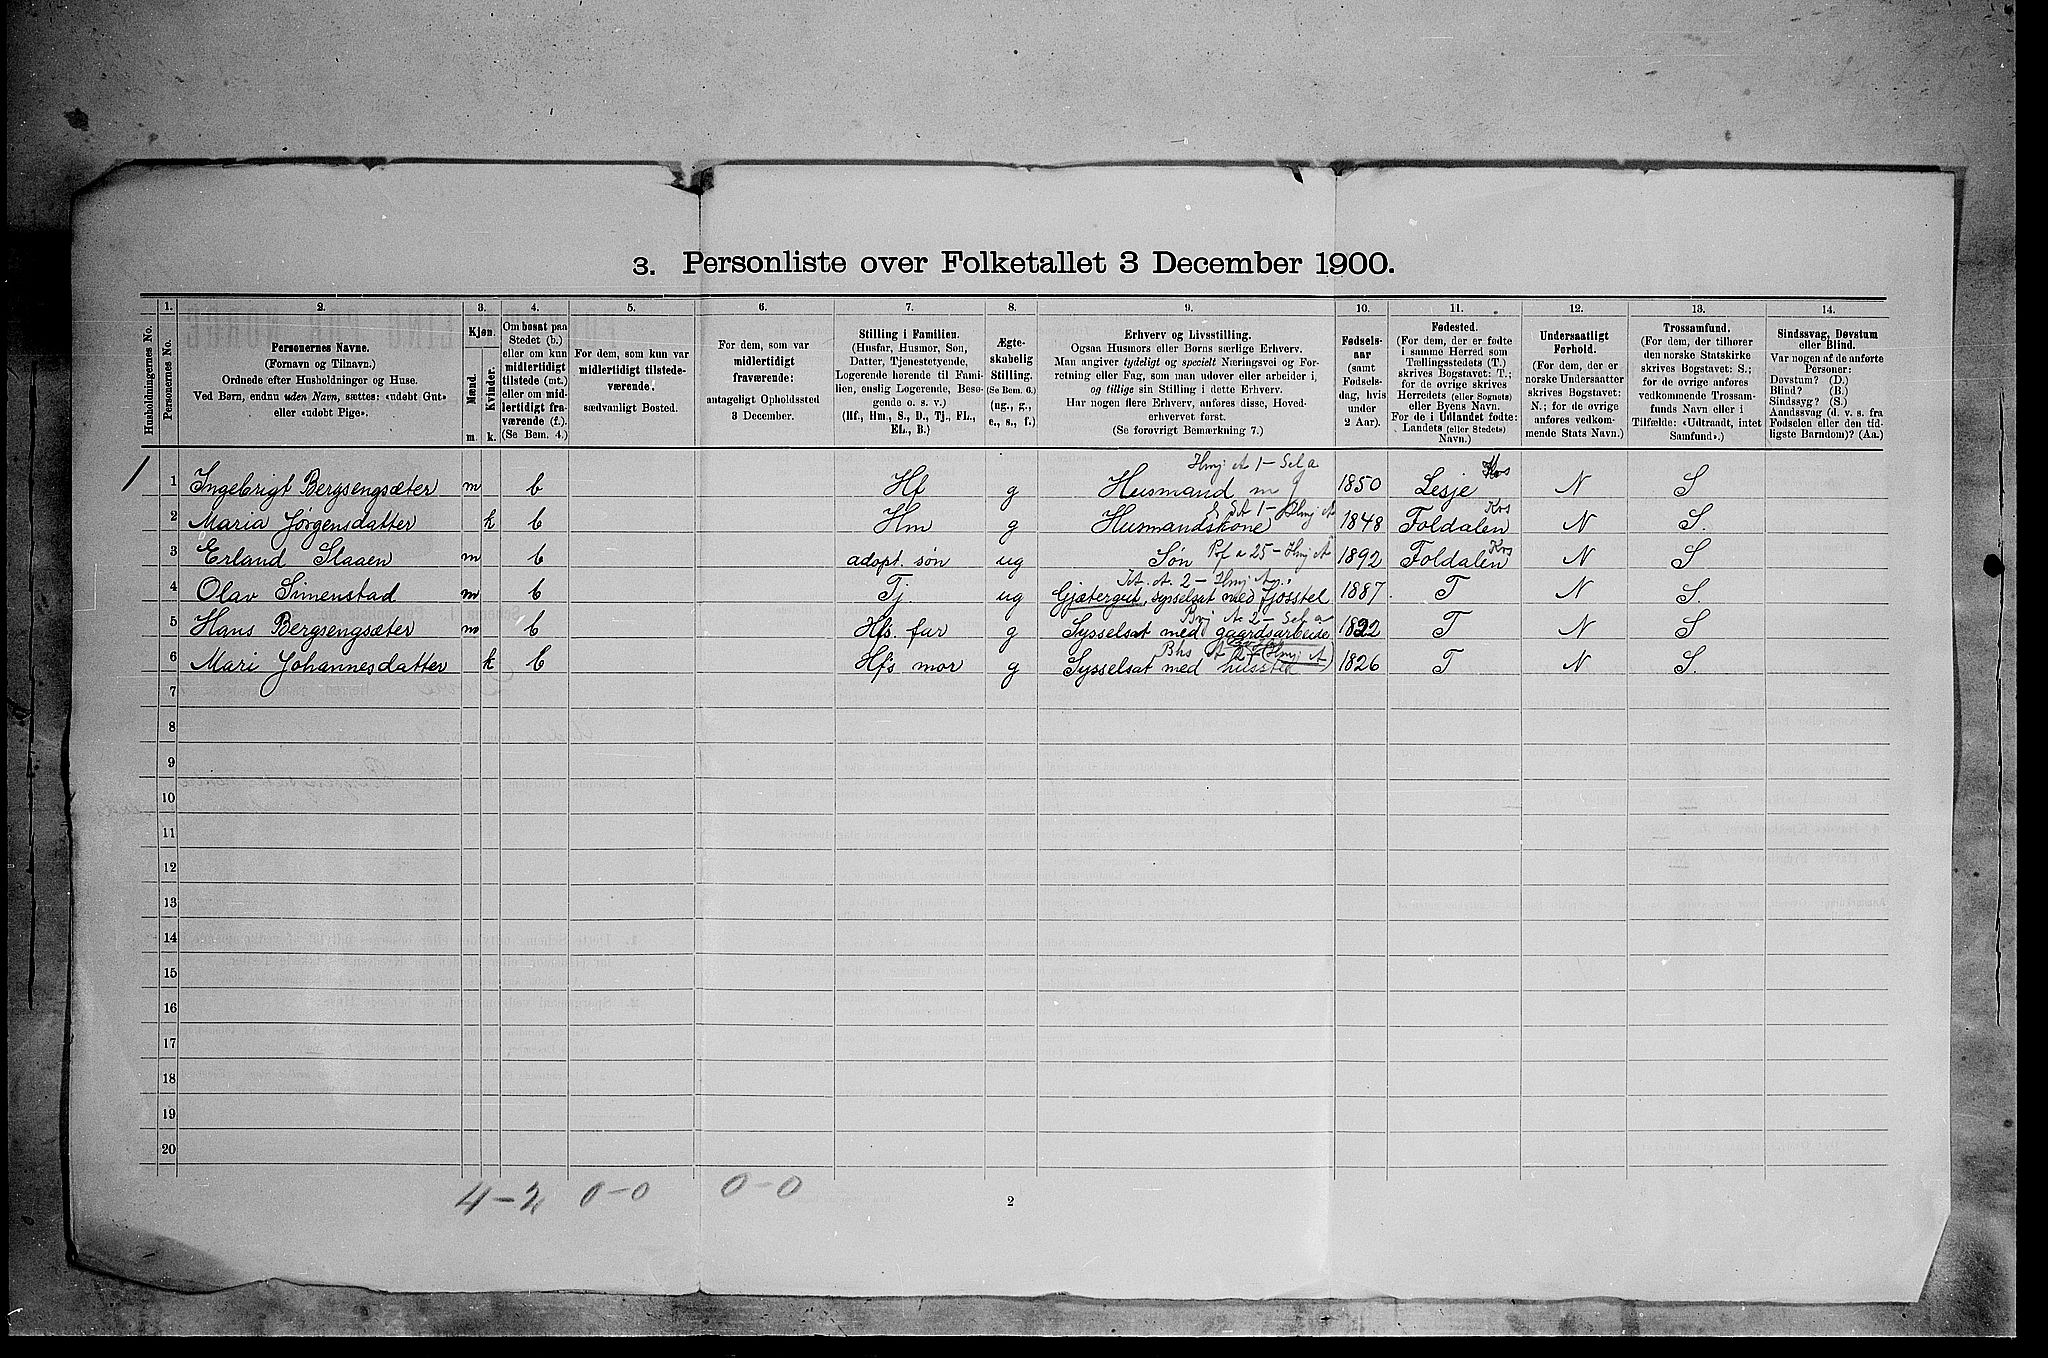 3. Personliste over Folketallet 3 December 1900.
Husholdningernes No.
1. Personernes No.
2. Personernes Navne.
(Fornavn og Tilnavn.)
Ordnede efter Husholdninger og Huse.
Ved Børn, endnu uden Navn, sættes: «udøbt Gut»
eller «udøbt Pige».
3. Kjøn.
Mænd. m.
Kvinder. k.
4. Om bosat paa
Stedet (b.)
eller om kun
midlertidigt
tilstede (mt.)
eller om mid-
lertidigt fra-
værende (f.).
(Se Bem. 4.)
5. For dem, som kun var
midlertidigt tilstede-
værende:
sædvanligt Bosted.
6. For dem, som var
midlertidigt
fraværende:
antageligt Opholdssted
3 December.
7. Stilling i Familien.
(Husfar, Husmor, Søn,
Datter, Tjenestetyende,
Logerende hørende til Fami-
lien, enslig Logerende, Besø-
gende o. s. v.)
(Hf., Hm., S., D., Tj., FL.,
EL., B.)
8. Ægte-
skabelig
Stilling.
(Se Bem. 6.)
(ug., g.,
e., s., f.)
9. Erhverv og Livsstilling.
Ogsaa Husmors eller Børns særlige Erhverv.
Man angiver tydeligt og specielt Næringsvei og For-
retning eller Fag, som man udøver eller arbeider i,
og tillige sin Stilling i dette Erhverv.
Har nogen flere Erhverv, anføres disse, Hoved-
erhvervet først.
(Se forøvrigt Bemærkning 7.)
10. Fødsels-
aar
(samt
Fødsels-
dag, hvis
under
2 Aar).
11. Fødested.
(For dem, der er fødte
i samme Herred som
Tællingsstedets (T.)
skrives Bogstavet: T.;
for de øvrige skrives
Herredets (eller Sognets)
eller Byens Navn.
For de i Udlandet fødte:
Landets (eller Stedets)
Navn.)
12. Undersaatligt
Forhold.
(For dem, der er
norske Undersaatter
skrives Bogstavet:
N.; for de øvrige
anføres vedkom-
mende Stats Navn.)
13. Trossamfund.
(For dem, der tilhører
den norske Statskirke
skrives Bogstavet: S.;
for de øvrige anføres
vedkommende Trossam-
funds Navn eller i
Tilfælde: «Udtraadt, intet
Samfund».)
14. Sindssvag, Døvstum
eller Blind.
Var nogen af de anførte
Personer:
Døvstum? (D.)
Blind? (B.)
Sindssyg? (S.)
Aandssvag (d. v. s. fra
Fødselen eller den tid-
ligste Barndom)? (Aa.)
Hmj A 1 – Sel a
1 1 Ingebrigt Bergsengsæter m b Hf g Husmand m 1850 Lesje Krs N S
2 Maria Jørgensdatter k b Hm g Husmandskone 1848 Foldalen Krs N S.
3 Erland Slaaen m b adopt. søn ug Søn Pof a 25 – Hmj A 1892 Foldalen Krs N S
4 Olav Simenstad m b Tj ug Gjætergut, sysselsat med fjøsstel 1887 T N S.
5 Hans Bergsengsæter m b Hfs. far g Sysselsat med gaardsarbeide 1822 T N S
6 Mari Johannesdatter k b Hf's mor g Sysselsat med husstel 1826 T N S.
7
8
9
10
11
12
13
14
15
16
17
18
19
20
4–2 0–0 0–0
2